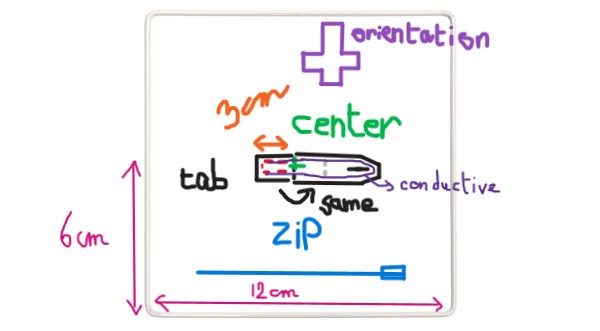 orientation
3cm
center
tab
conductive
same
6cm
ZiP
12cm